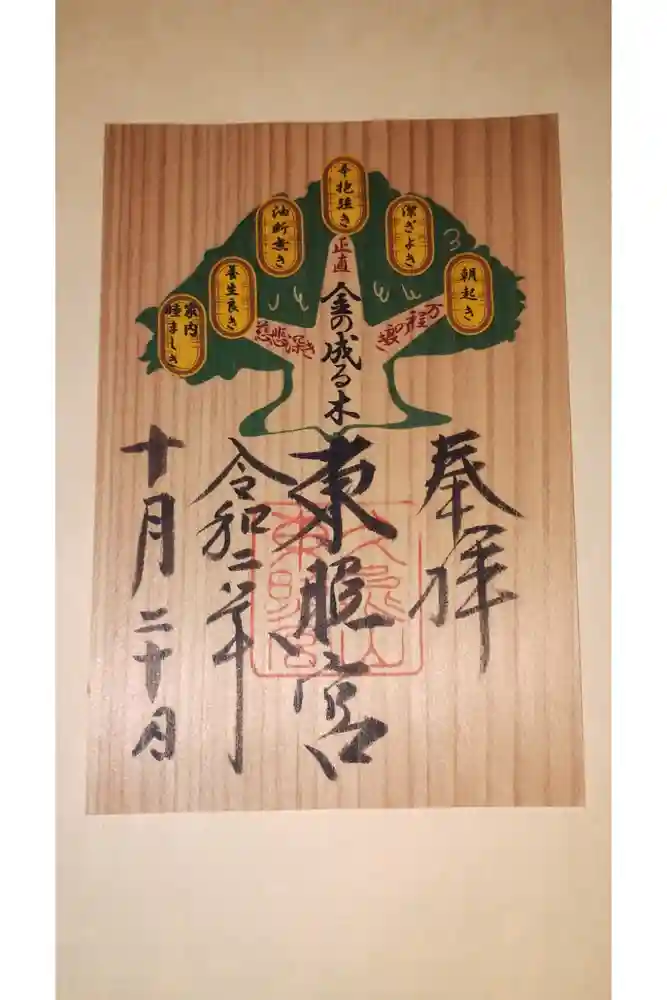 朝起き
潔ぎよき
辛抱強き
油断無き
養生良き
家内
睦ましき
万程の
正直
慈悲深き
金の成る木
奉拝
東照宮
令和二年
十月二十日